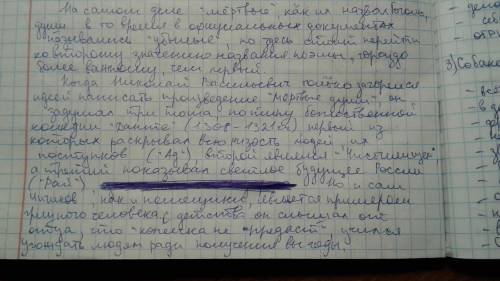 На самом деле "мёртвые" как их назвал Гоголь,
души в то время в официальных документах
назывались "убылые", но здесь стоит перейти
ко второму значению названия поэмы, гораздо
более важному, чем первый.
Когда Николай Васильевич только загорелся
идеей написать произведение "Мёртвые души", он
задумал три тома по типу божественной
комедии "Данте" (1308-1321гг) первый из
которых раскрывал всю низость людей их
поступков ("Ад") второй являлся "Чистилищем",
а третий показывал светлое будущее России
("Рай") Но и сам
Чичиков, как и помещики, является примером
человека (с детства он слышал от
отца, что "копейка не предаст", учился
угождать людям ради получения выгоды.
3) Собак